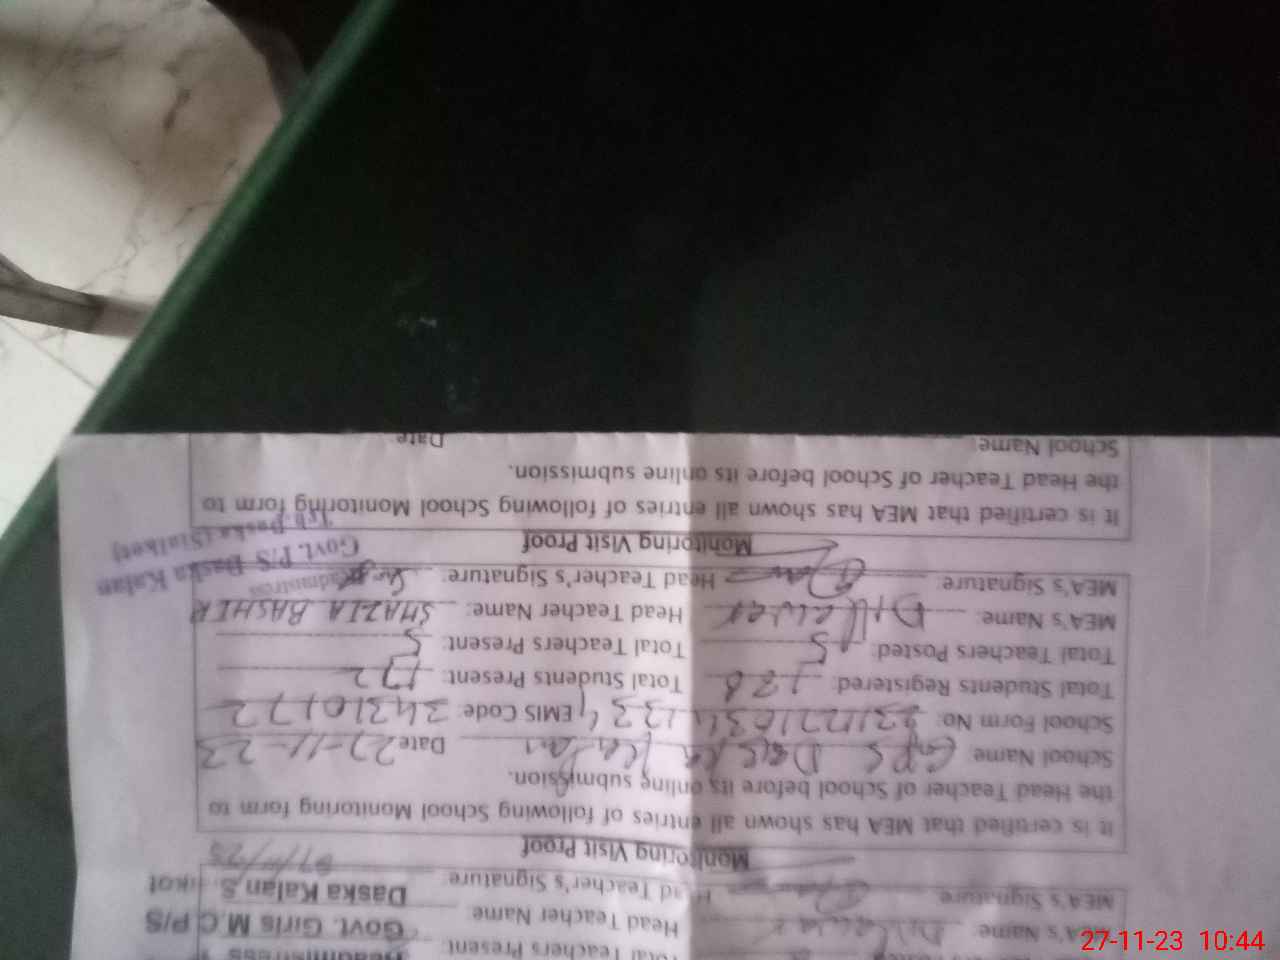 Headmistress
Total Teachers Present:
Govt. Girls M.C P/S
MEA's Name: Dilawar Head Teacher Name:
Daska Kalan S
MEA's Signature: Head Teacher's Signature:
Monitoring Visit Proof
It is certified that MEA has shown all entries of following School Monitoring form to
the Head Teacher of School before its online submission.
School Name GPS Daska Kalan Date 27-11-23
School Form No: EMIS Code: 34310172
Total Students Registered: 178 Total Students Present: 172
Total Teachers Posted: 5 Total Teachers Present: 5
MEA's Name: Head Teacher Name: SHAZIA BASHIR
MEA's Signature: Head Teacher's Signature:
Headmistress
Govt. P/S Daska Kalan
Teh. Daska (Sialkot)
Monitoring Visit Proof
It is certified that MEA has shown all entries of following School Monitoring form to
the Head Teacher of School before its online submission.
School Name: Date
27-11-23 10:44